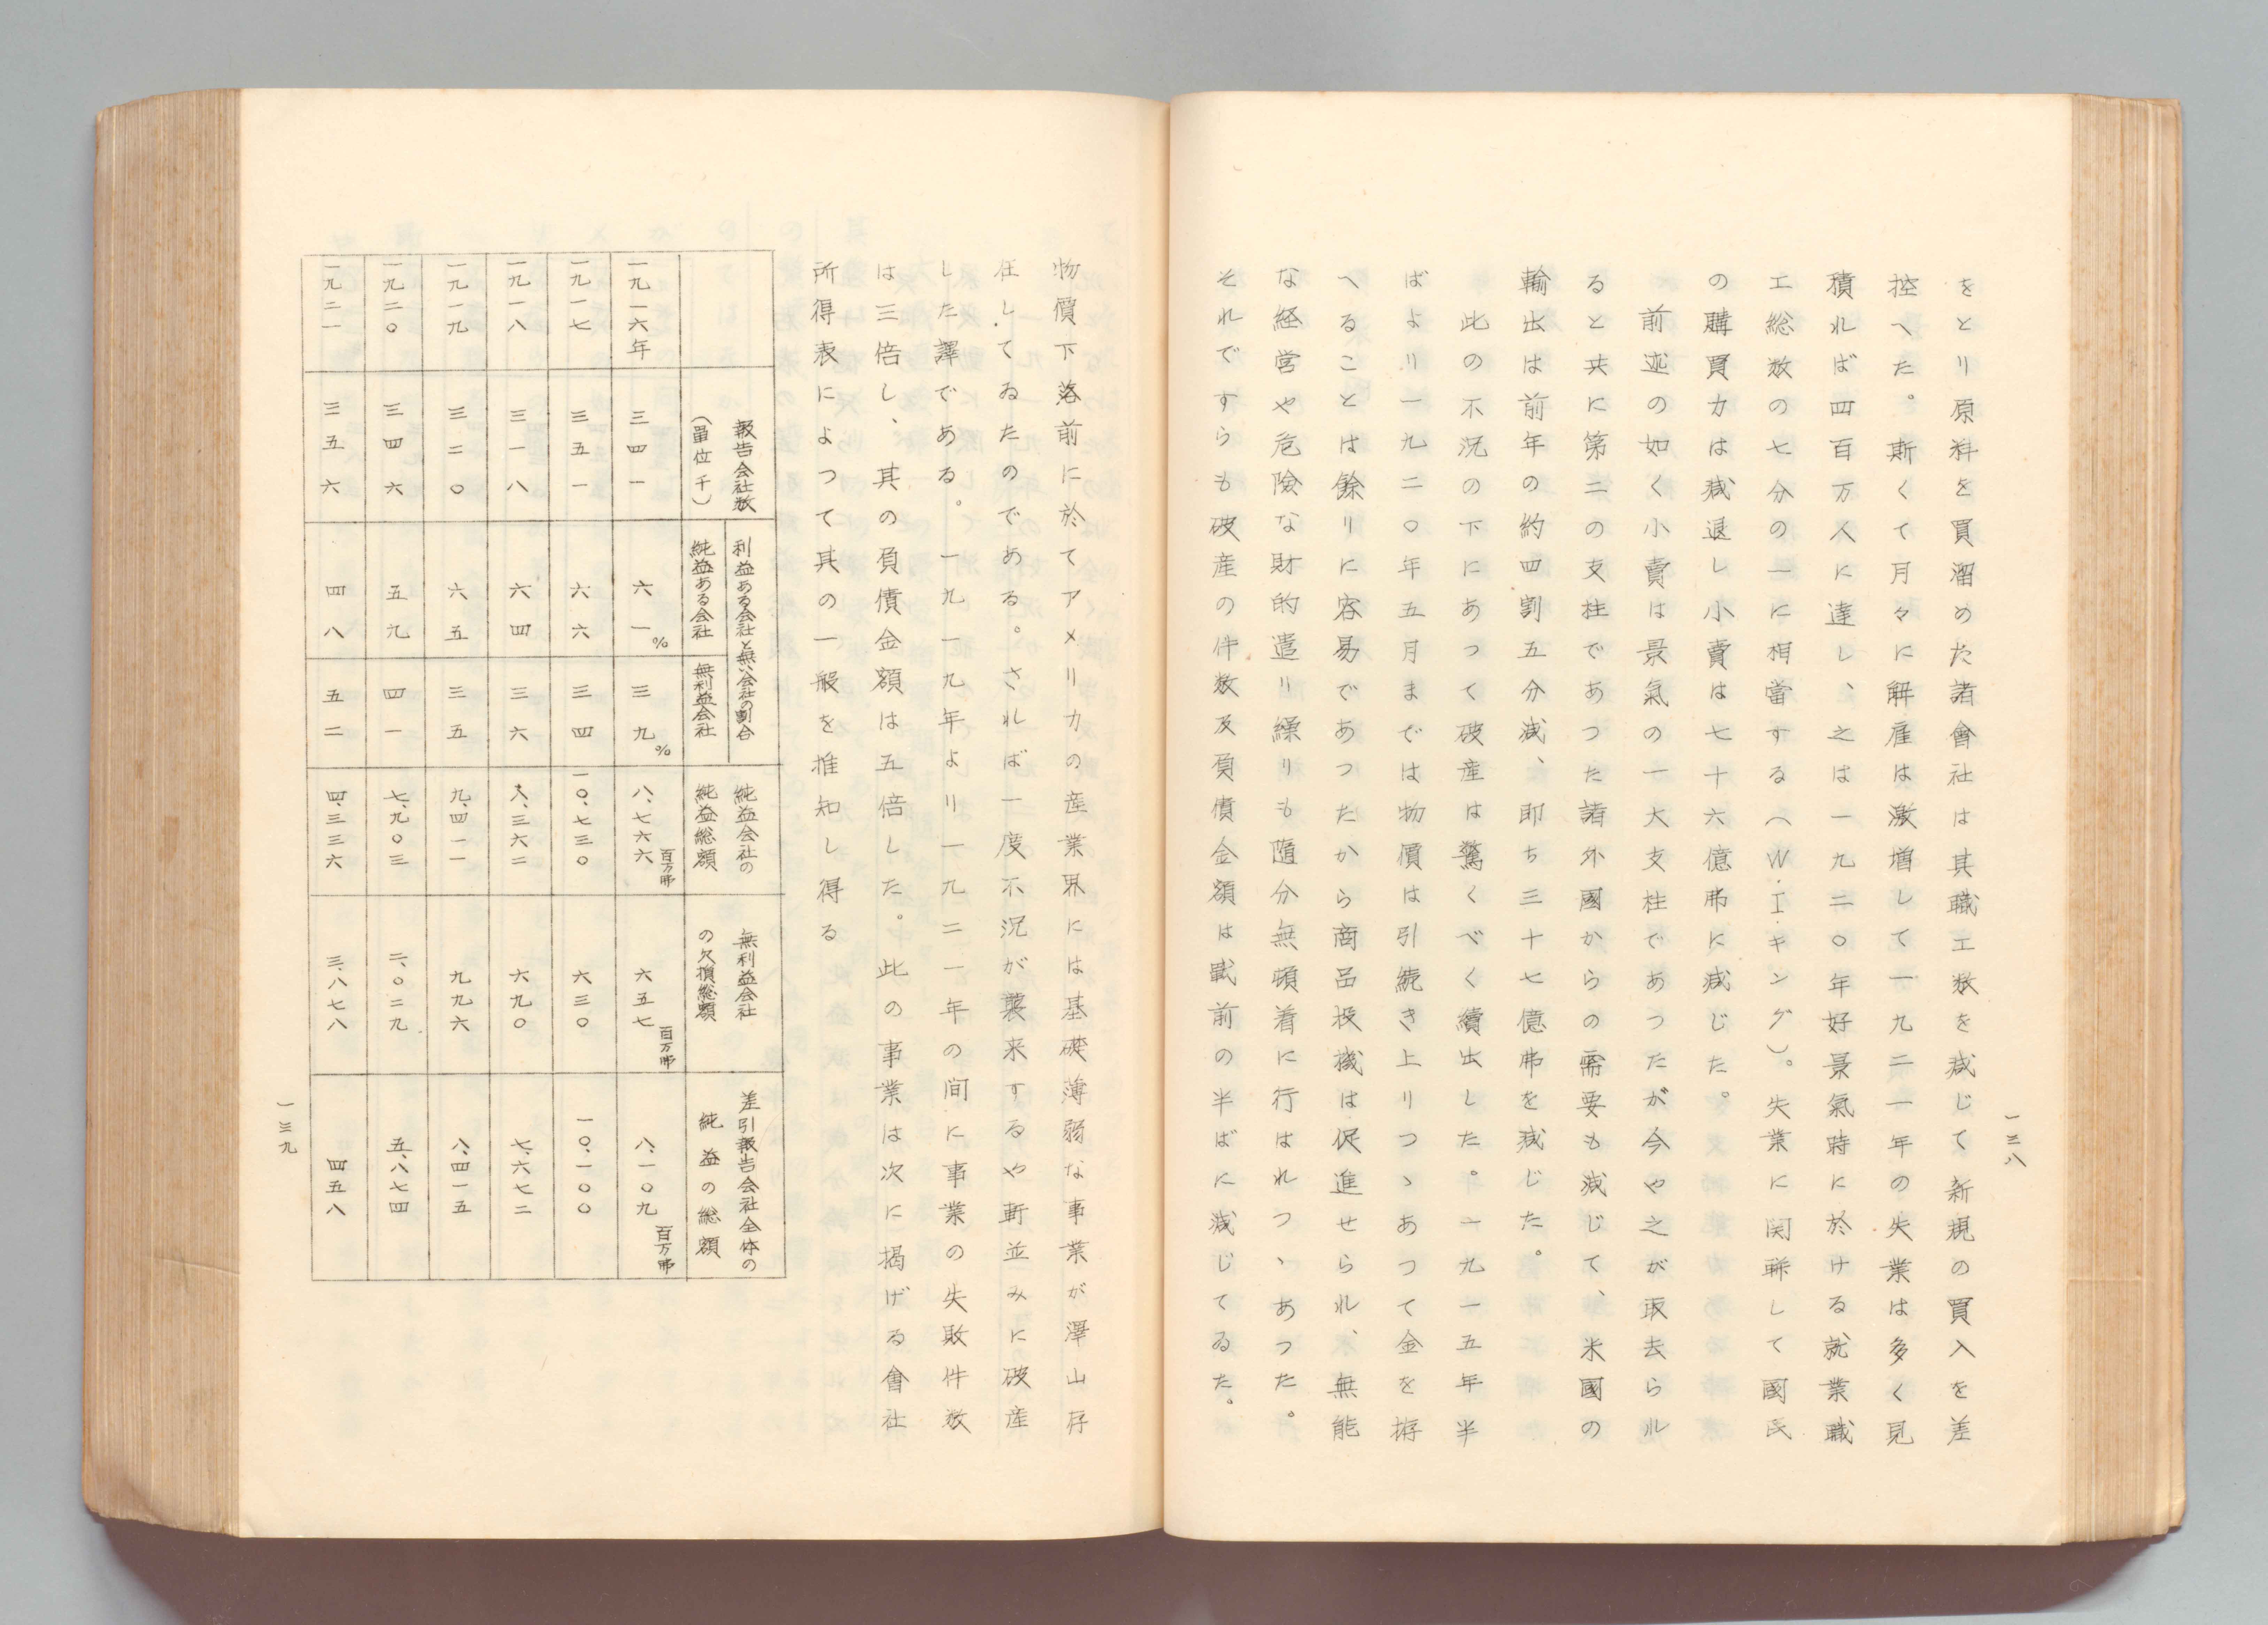 一三八
をとり原料を買溜めた諸會社は其職工数を減じて新規の買入を差
控へた。斯くて月々に解雇は激増して一九二一年の失業は多く見
積れば四百万人に達し、之は一九二〇年好景氣時に於ける就業職
工総数の七分の一に相當する（W・I・キング）。失業に関聯して國民
の購買力は減退し小賣は七十六億弗に減じた。
前述の如く小賣は景氣の一大支柱であつたが今や之が取去らル
ると共に第二の支柱であつた諸外國からの需要も減じて、米國の
輸出は前年の約四割五分減、即ち三十七億弗を減じた。
此の不況の下にあつて破産は驚くべく續出した。一九一五年半
ばより一九二〇年五月までは物價は引続き上りつゝあつて金を拵
へることは餘りに容易であつたから商品投機は促進せられ、無能
な経営や危険な財的遣り繰りも随分無頓着に行はれつゝあつた。
それですらも破産の件数及負債金額は戦前の半ばに減じてゐた。
物價下落前に於てアメリカの産業界には基礎薄弱な事業が澤山存
在してゐたのである。されば一度不況が襲来するや軒並みに破産
した譯である。一九一九年より一九二一年の間に事業の失敗件数
は三倍し、其の負債金額は五倍した。此の事業は次に掲げる會社
所得表によつて其の一般を推知し得る
報告会社数
（單位千）
利益ある会社と無い会社の割合
純益ある会社
無利益会社
純益会社の
純益総額
無利益会社
の欠損総額
差引報告会社全体の
純益の総額
一九一六年 三四一 六一% 三九% 八、七六六百万弗 六五七百万弗 八、一〇九百万弗
一九一七 三五一 六六 三四 一〇、七三〇 六三〇 一〇、一〇〇
一九一八 三一八 六四 三六 八、三六二 六九〇 七、六七二
一九一九 三二〇 六五 三五 九、四一一 九九六 八、四一五
一九二〇 三四六 五九 四一 七、九〇三 二、〇二九 五、八七四
一九二一 三五六 四八 五二 四、三三六 三、八七八 四五八
一三九